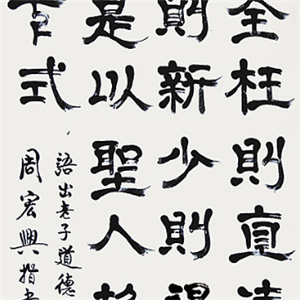 全枉則直
則新少則得
是以聖人抱
下式
語出老子道德
周宏興指書